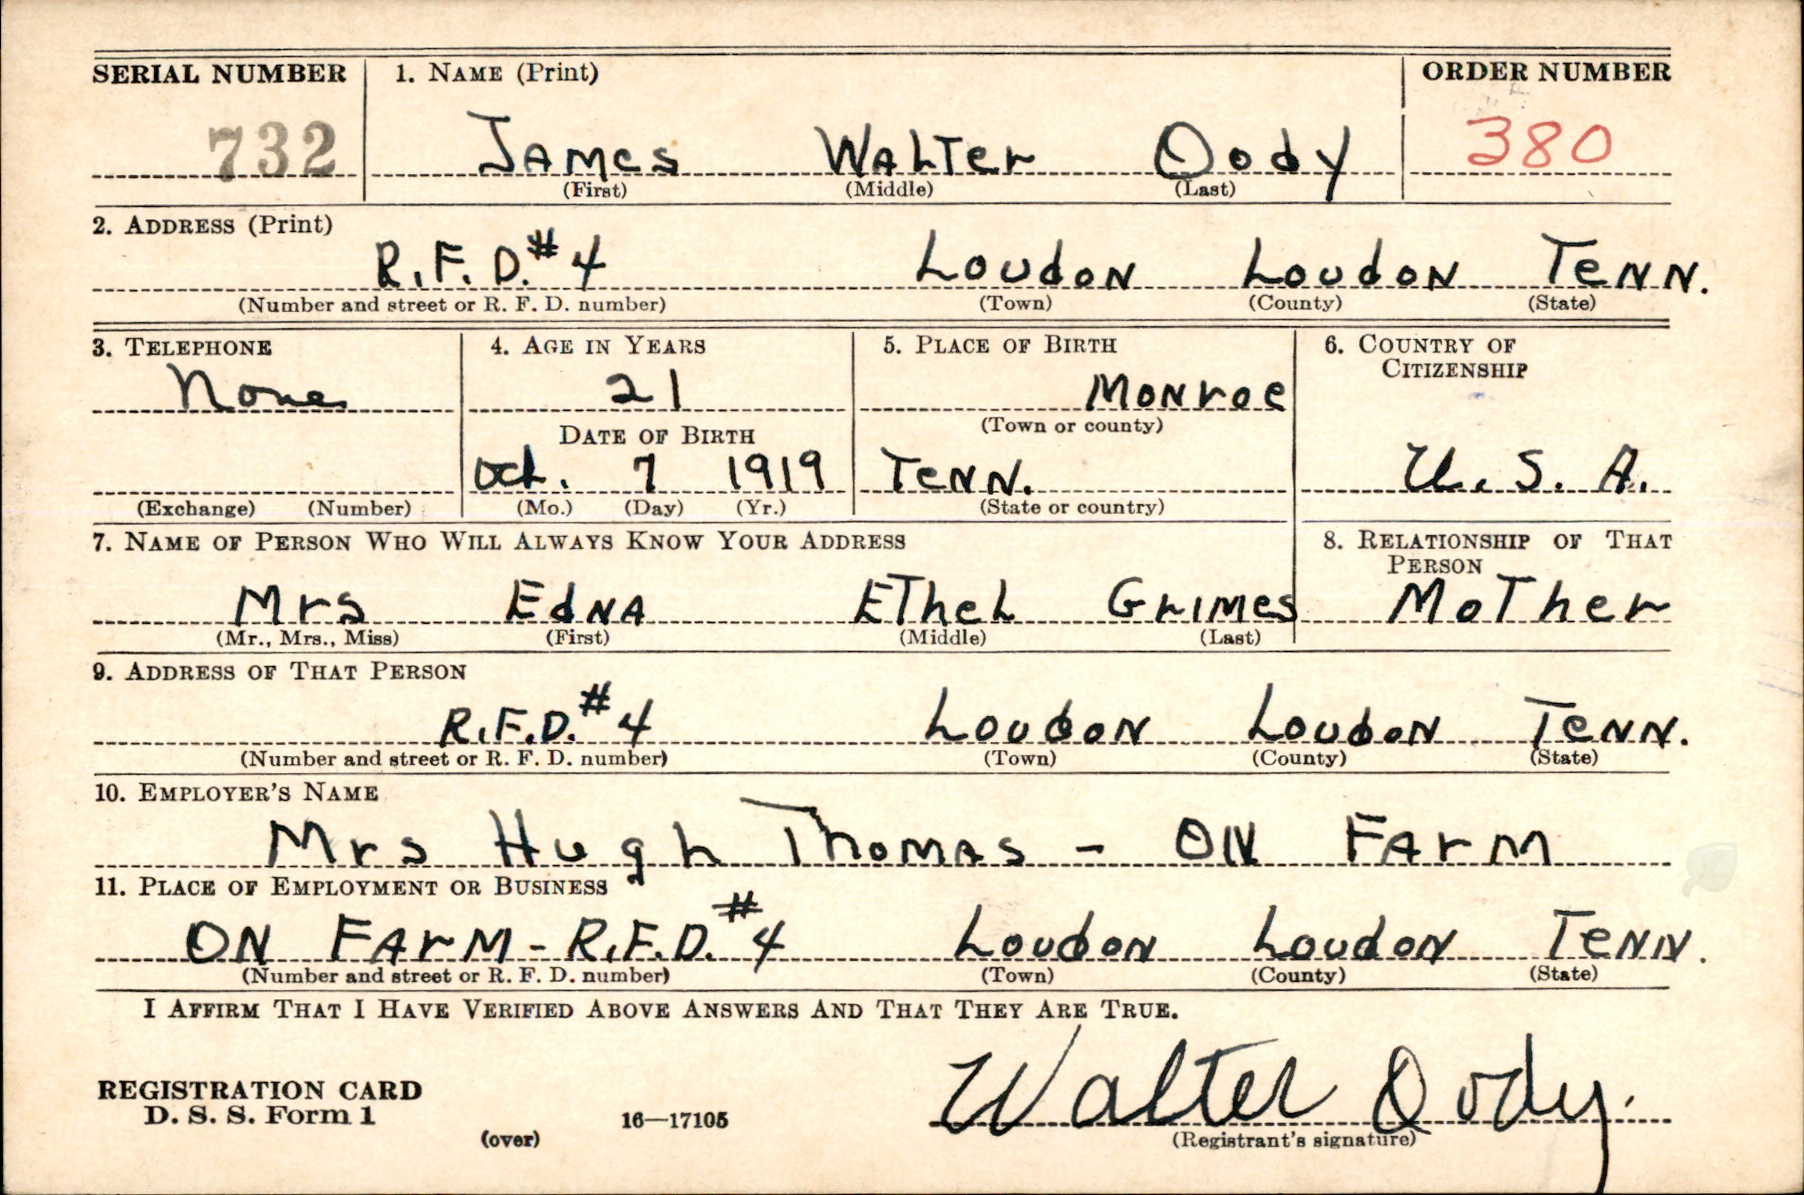 SERIAL NUMBER 1. NAME (Print) ORDER NUMBER
732 JAMes WALTer Oody 380
(First) (Middle) (Last)
2. ADDRESS (Print)
R.F.D.#4 LoudoN LoudoN TeNN.
(Number and street or R. F. D. number) (Town) (County) (State)
3. TELEPHONE 4. AGE IN YEARS 5. PLACE OF BIRTH 6. COUNTRY OF CITIZENSHIP
None 21 MoNroe
DATE OF BIRTH (Town or county)
Oct. 7 1919 TeNN. U.S.A.
(Exchange) (Number) (Mo.) (Day) (Yr.) (State or country)
7. NAME OF PERSON WHO WILL ALWAYS KNOW YOUR ADDRESS 8. RELATIONSHIP OF THAT PERSON
Mrs EdNA EThel GriMes MoTher
(Mr., Mrs., Miss) (First) (Middle) (Last)
9. ADDRESS OF THAT PERSON
R.F.D.#4 LoudoN LoudoN TeNN.
(Number and street or R. F. D. number) (Town) (County) (State)
10. EMPLOYER'S NAME
Mrs Hugh ThoMAs - ON FArM
11. PLACE OF EMPLOYMENT OR BUSINESS
ON FArM - R.F.D.#4 LoudoN LoudoN TeNN.
(Number and street or R. F. D. number) (Town) (County) (State)
I AFFIRM THAT I HAVE VERIFIED ABOVE ANSWERS AND THAT THEY ARE TRUE.
Walter Oody.
REGISTRATION CARD
D. S. S. Form 1 16—17105
(over) (Registrant's signature)